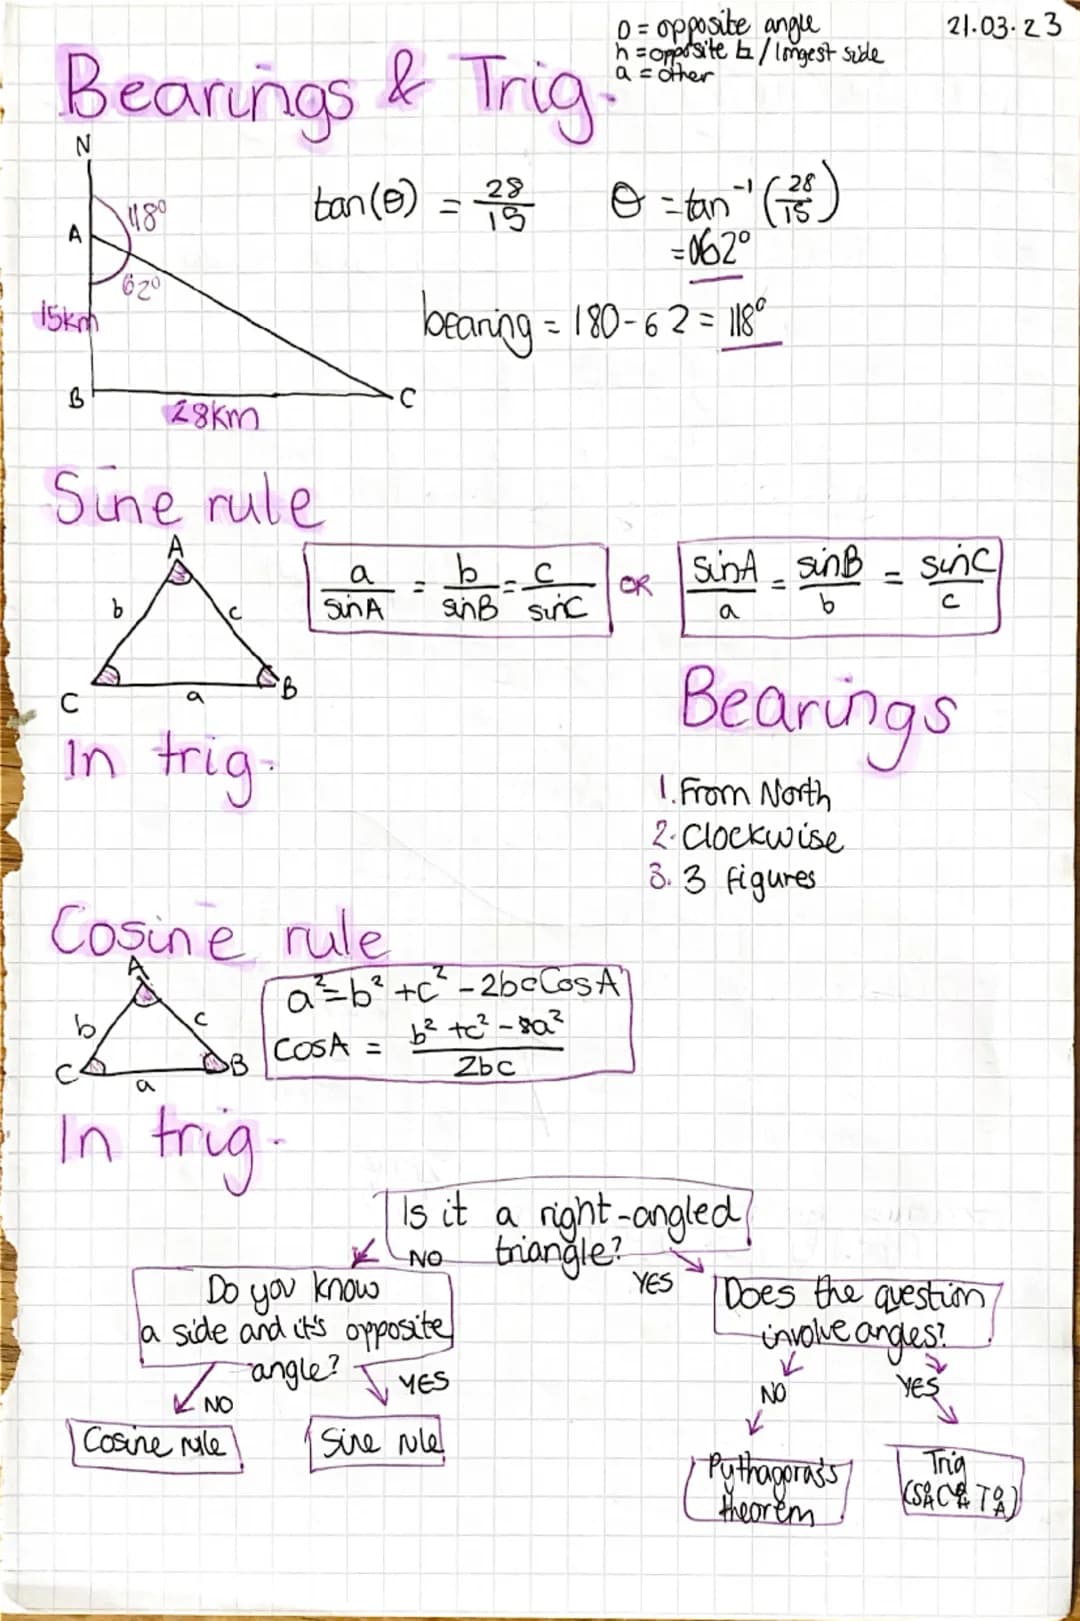 o = opposite angle
h = opposite ∟/longest side
a = other
21.03.23
Bearings & Trig.
N
118°
A
62°
15km
B
28km
C
tan(θ) = 28/15
θ = tan⁻¹(28/15)
= 062°
bearing = 180-62 = 118°
Sine rule
A
b
c
C
a
B
a/sinA = b/sinB = c/sinC
OR
sinA/a = sinB/b = sinC/c
In trig.
Bearings
1. From North
2. Clockwise
3. 3 figures
Cosine rule
A
b
c
C
a
B
a²=b²+c²-2bcCosA
CosA = b²+c²-a²/2bc
In trig.
Is it a right-angled
triangle?
NO
YES
Do you know
a side and it's opposite
angle?
NO
YES
Cosine rule
Sine rule
Does the question
involve anges?
NO
YES
Pythagoras's
theorem
Trig
(SOH CAH TOA)